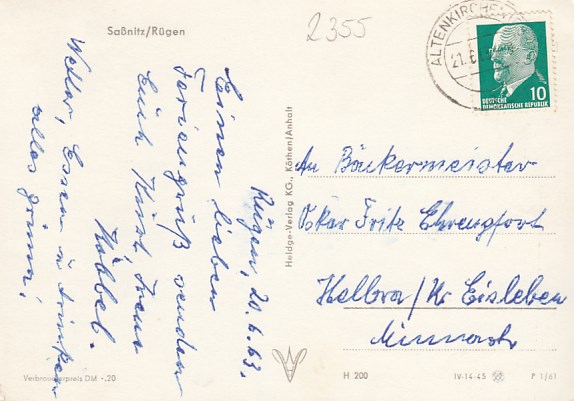 Saßnitz/Rügen
2355
ALTENKIRCHEN
DEUTSCHE
DEMOKRATISCHE REPUBLIK
10
Rügen, 20.6.63.
Einen lieben
Feriengruß senden
Euch Kurt, Irene
Köbbel.
Wetter, Essen u. trinken
alles prima!
An Bäckermeister
Oskar Fritz Ehrengfort
Helbra/Kr Eisleben
Heldge-Verlag KG., Köthen/Anhalt
Verbraucherpreis DM -,20
H 200
IV-14-45
P 1/61